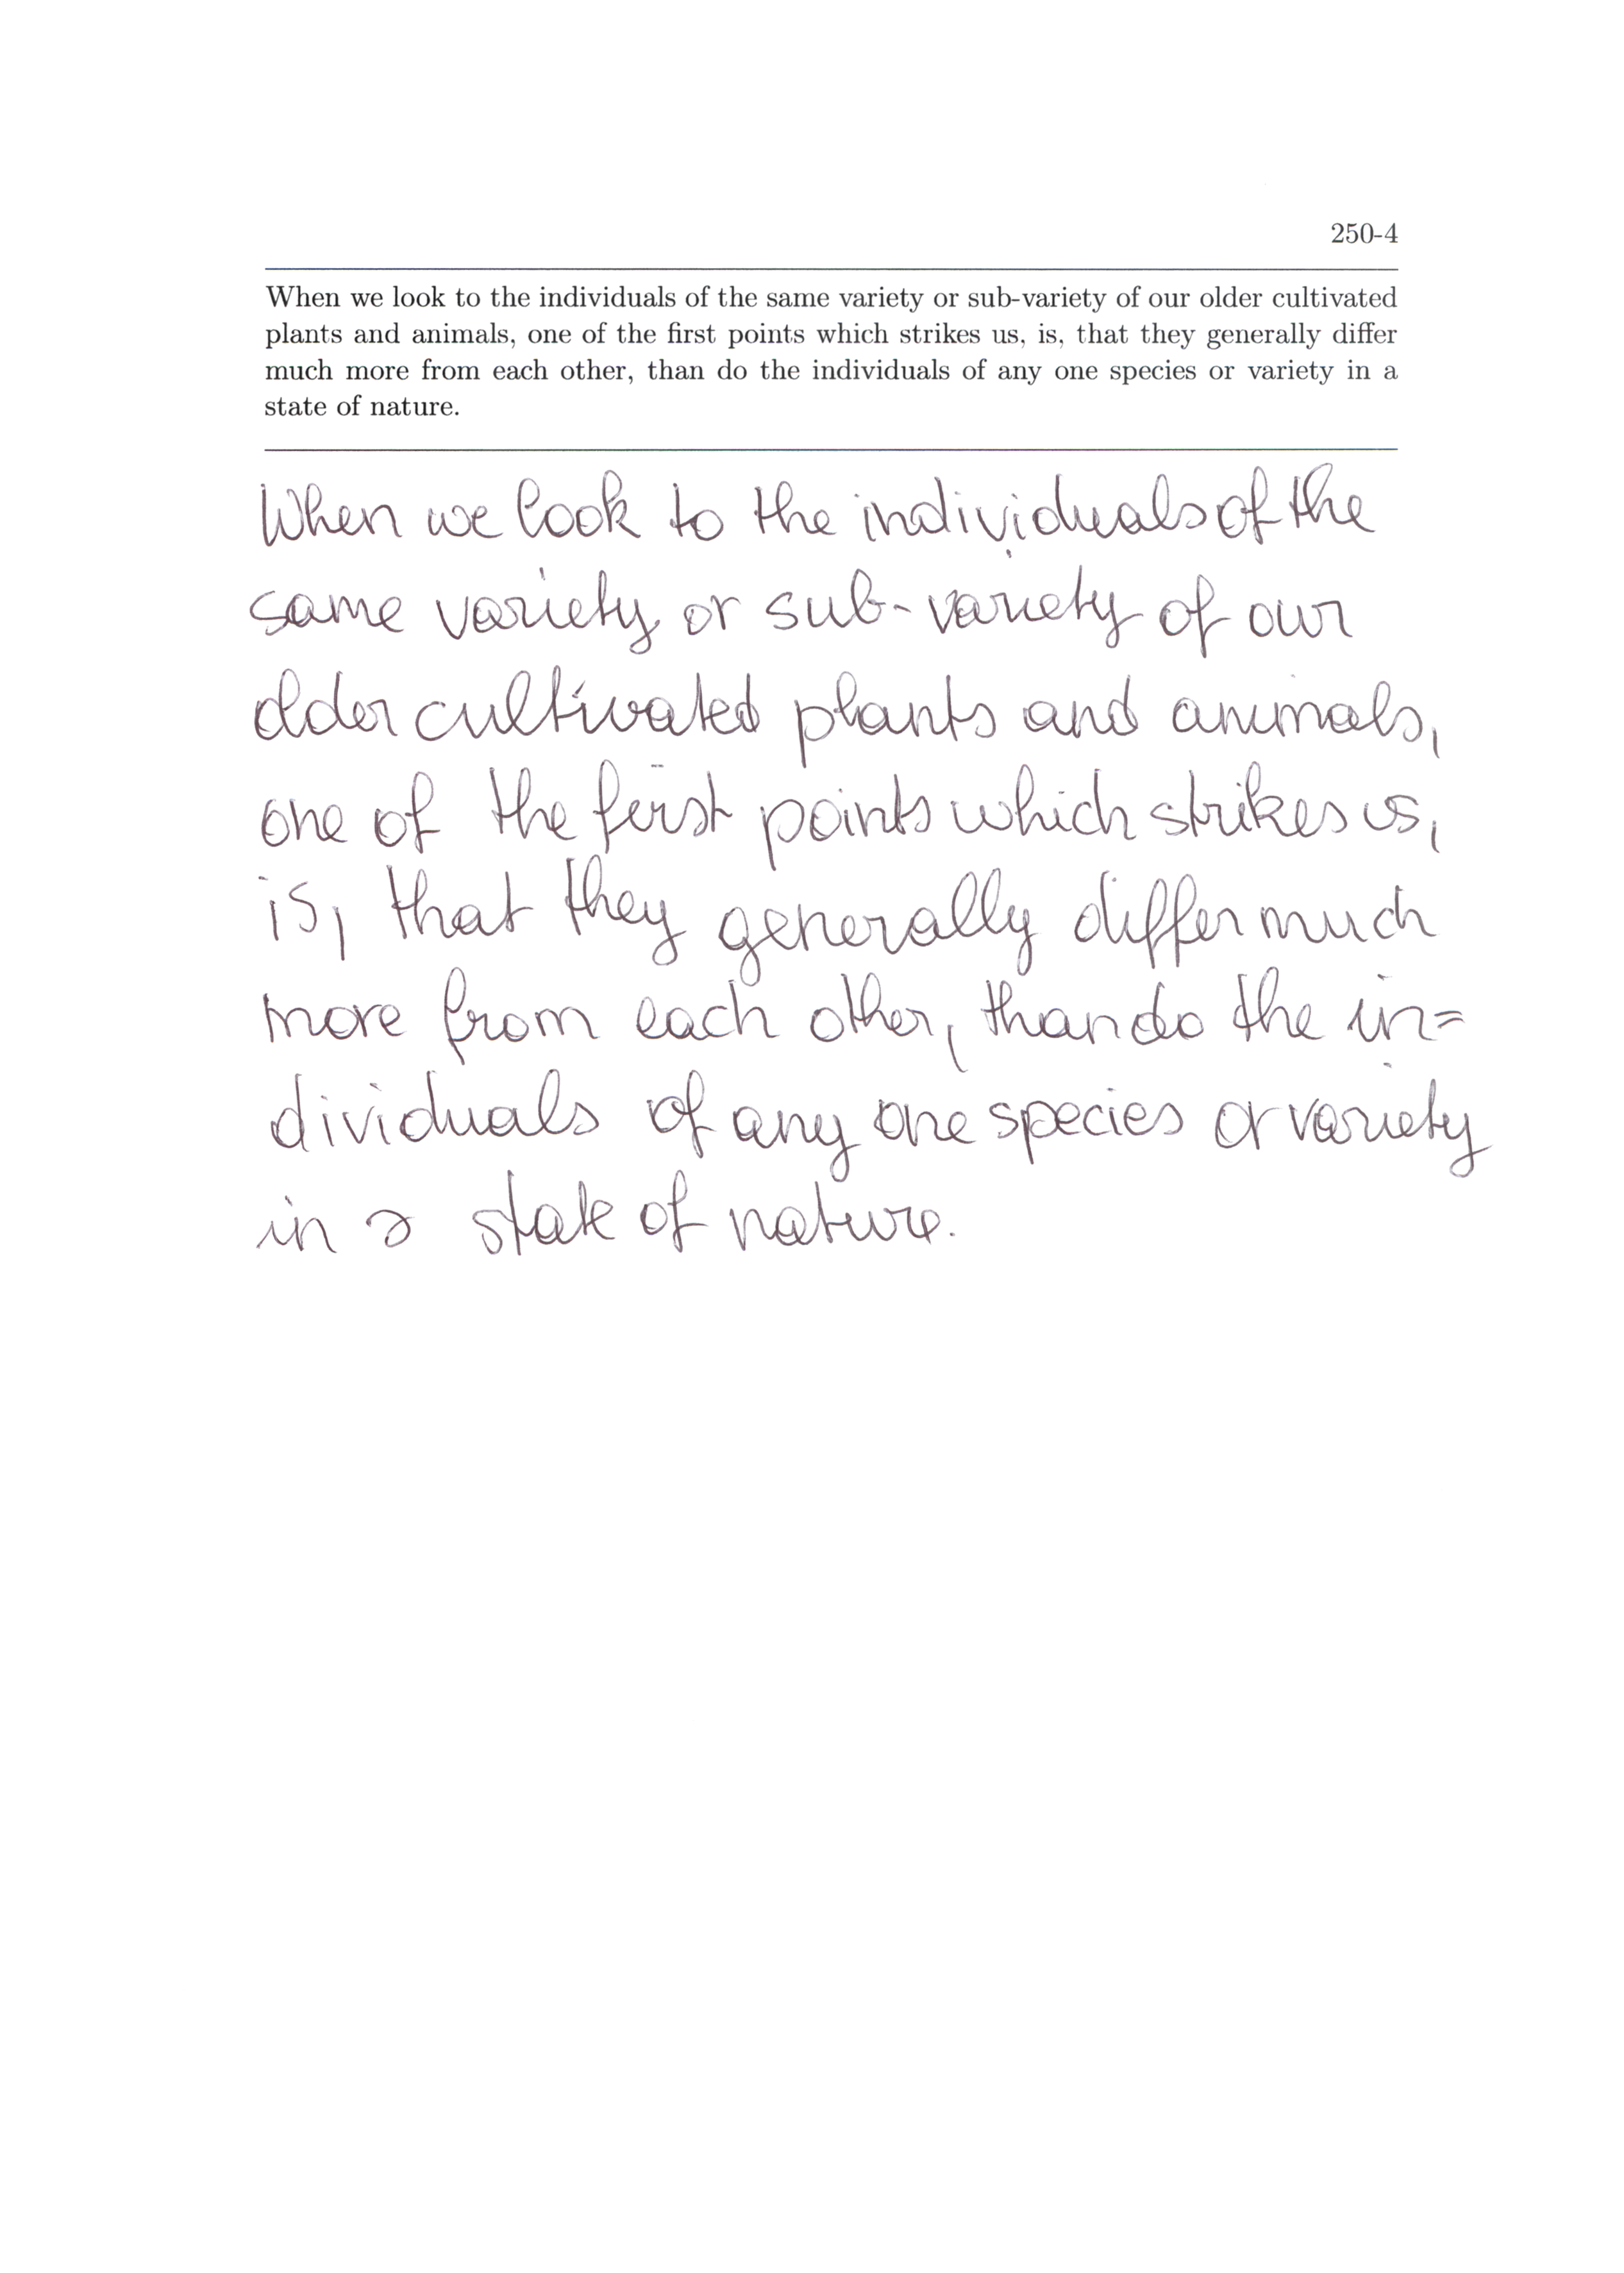 250-4
When we look to the individuals of the same variety or sub-variety of our older cultivated
plants and animals, one of the first points which strikes us, is, that they generally differ
much more from each other, than do the individuals of any one species or variety in a
state of nature.
When we look to the individuals of the
same variety or sub-variety of our
older cultivated plants and animals,
one of the first points which strikes us,
is, that they generally differ much
more from each other, than do the in=
dividuals of any one species or variety
in a state of nature.